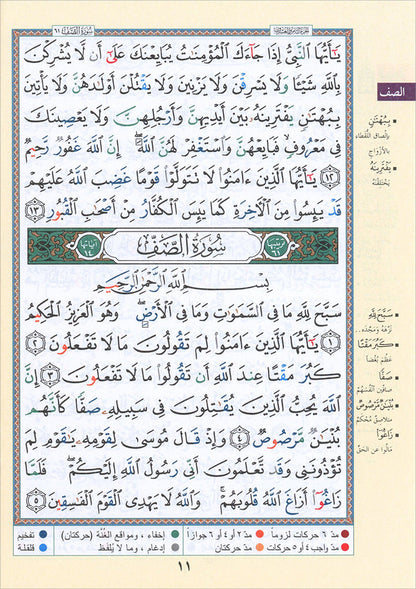 سُورَةُ الصَّفِّ ٦١
يَـٰٓأَيُّهَا ٱلنَّبِىُّ إِذَا جَآءَكَ ٱلْمُؤْمِنَـٰتُ يُبَايِعْنَكَ عَلَىٰٓ أَن لَّا يُشْرِكْنَ
بِٱللَّهِ شَيْـًٔا وَلَا يَسْرِقْنَ وَلَا يَزْنِينَ وَلَا يَقْتُلْنَ أَوْلَـٰدَهُنَّ وَلَا يَأْتِينَ
بِبُهْتَـٰنٍ يَفْتَرِينَهُۥ بَيْنَ أَيْدِيهِنَّ وَأَرْجُلِهِنَّ وَلَا يَعْصِينَكَ
فِى مَعْرُوفٍ فَبَايِعْهُنَّ وَٱسْتَغْفِرْ لَهُنَّ ٱللَّهَ إِنَّ ٱللَّهَ غَفُورٌ رَّحِيمٌ
١٢ يَـٰٓأَيُّهَا ٱلَّذِينَ ءَامَنُوا۟ لَا تَتَوَلَّوْا۟ قَوْمًا غَضِبَ ٱللَّهُ عَلَيْهِمْ
قَدْ يَئِسُوا۟ مِنَ ٱلْـَٔاخِرَةِ كَمَا يَئِسَ ٱلْكُفَّارُ مِنْ أَصْحَـٰبِ ٱلْقُبُورِ ١٣
ترتيبها ٦١ سُورَةُ الصَّفِّ آياتها ١٤
بِسْمِ ٱللَّهِ ٱلرَّحْمَـٰنِ ٱلرَّحِيمِ
سَبَّحَ لِلَّهِ مَا فِى ٱلسَّمَـٰوَٰتِ وَمَا فِى ٱلْأَرْضِ وَهُوَ ٱلْعَزِيزُ ٱلْحَكِيمُ
١ يَـٰٓأَيُّهَا ٱلَّذِينَ ءَامَنُوا۟ لِمَ تَقُولُونَ مَا لَا تَفْعَلُونَ ٢
كَبُرَ مَقْتًا عِندَ ٱللَّهِ أَن تَقُولُوا۟ مَا لَا تَفْعَلُونَ ٣ إِنَّ
ٱللَّهَ يُحِبُّ ٱلَّذِينَ يُقَـٰتِلُونَ فِى سَبِيلِهِۦ صَفًّا كَأَنَّهُم
بُنْيَـٰنٌ مَّرْصُوصٌ ٤ وَإِذْ قَالَ مُوسَىٰ لِقَوْمِهِۦ يَـٰقَوْمِ لِمَ
تُؤْذُونَنِى وَقَد تَّعْلَمُونَ أَنِّى رَسُولُ ٱللَّهِ إِلَيْكُمْ فَلَمَّا
زَاغُوٓا۟ أَزَاغَ ٱللَّهُ قُلُوبَهُمْ وَٱللَّهُ لَا يَهْدِى ٱلْقَوْمَ ٱلْفَـٰسِقِينَ ٥
الصف
بِبُهْتَـٰنٍ
بإلصاق اللقطاء
بالأزواج
يَفْتَرِينَهُۥ
يختلقنه
سَبَّحَ لِلَّهِ
نزّهه ومجّده..
كَبُرَ مَقْتًا
عظم بغضا
صَفًّا
صافّين أنفسهم
بُنْيَـٰنٌ مَّرْصُوصٌ
متلاصق محكم
زَاغُوٓا۟
مالوا عن الحق
مدّ ٦ حركات لزوماً مدّ ٢ أو ٤ أو ٦ جوازاً إخفاء، ومواقع الغنّة (حركتان) تفخيم
مدّ واجب ٤ أو ٥ حركات مدّ حركتان إدغام، وما لا يُلفظ قلقلة
١١